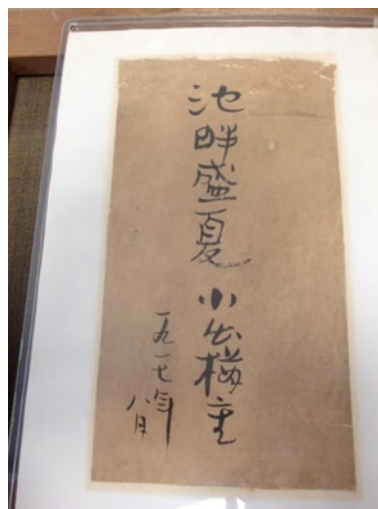 池畔盛夏 小出楢重
一九一七年
八月